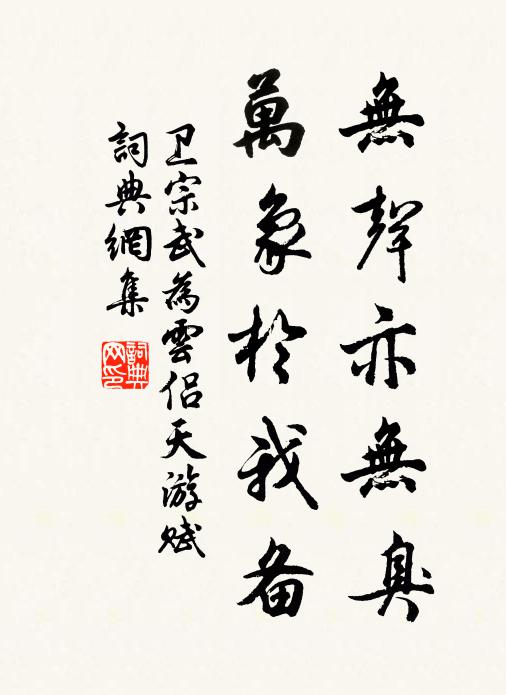 無聲亦無臭
萬象於我备
卫宗武為雲侣天游赋
詞典網集
詞典
网印